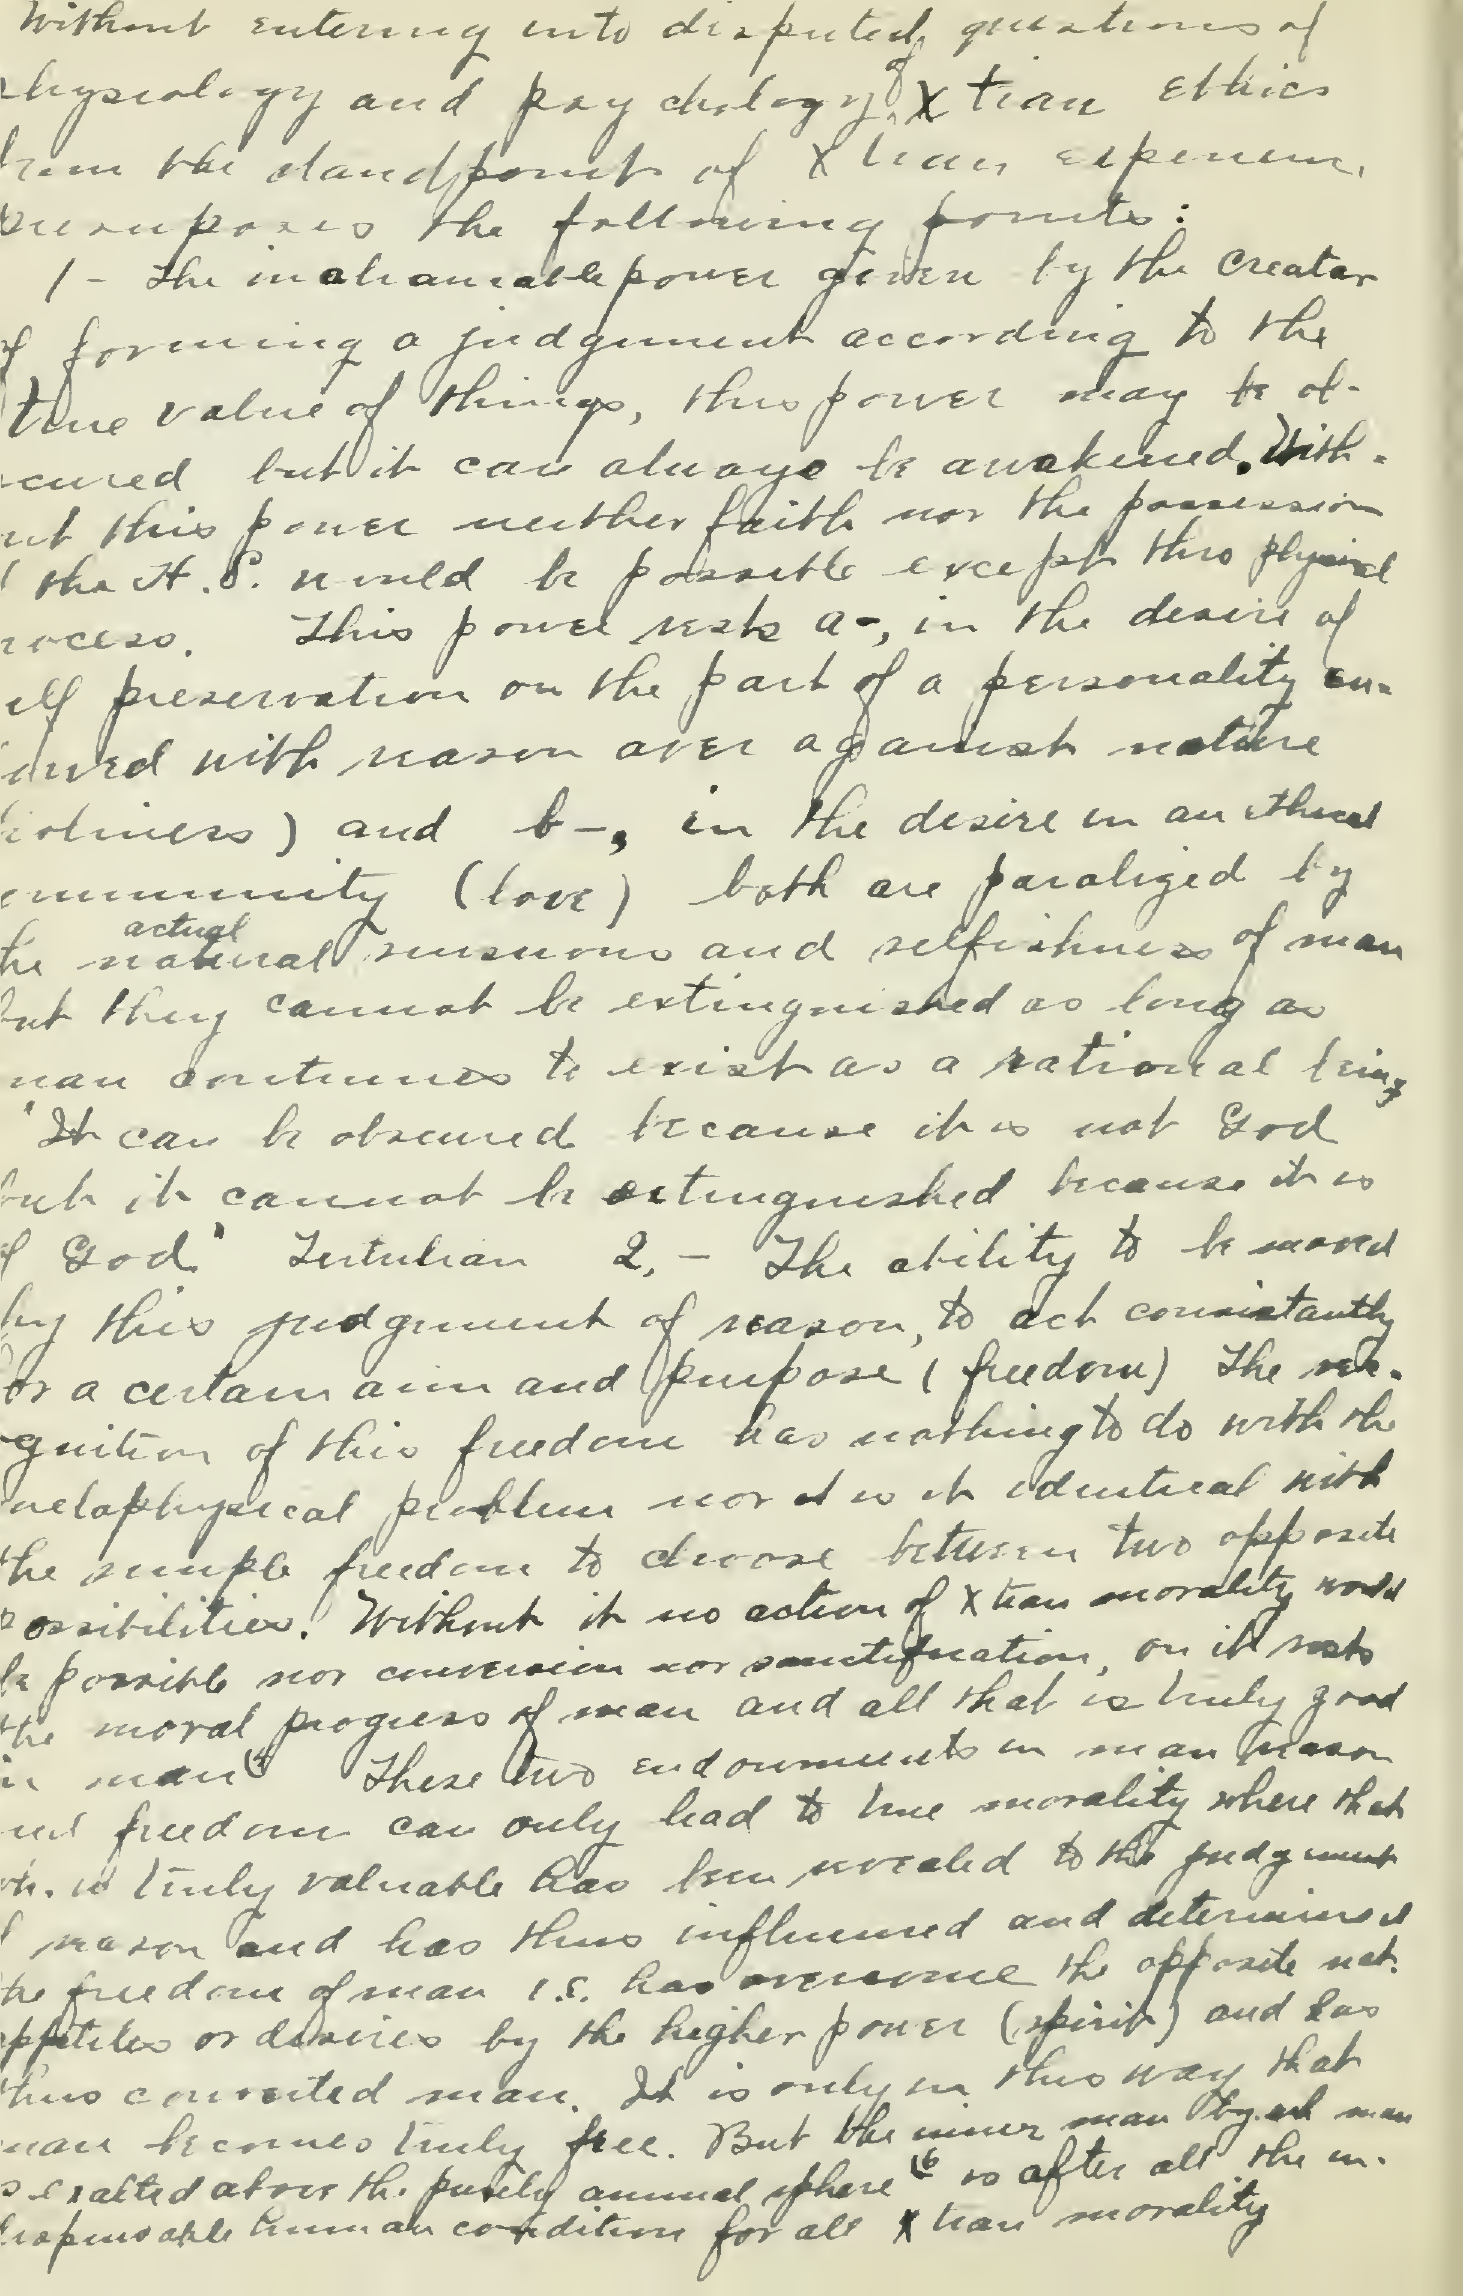 Without entering into disputed questions of
physiology and psychology, of Xtian Ethics
from the standpoint of Xtian experienc.
presupposes the following points:
1 - The inalienable power given by the Creator
of forming a judgement according to the
true value of things, this power may be ob-
scured but it can always be awakened. With-
out this power neither faith nor the possession
of the H.S. would be possible except thro physical
rocess. This power rests a-, in the desire of
elf preservation on the part of a personality en-
dowed with reason over against nature
holiness) and b-, in the desire in an ethical
ommunity (love) both are paralized by
actual
the natural sensuous and selfishness of man
but they cannot be extinguished as long as
man continues to exist as a rational being
"It can be obscured because it is not God
but it cannot be extinguished because it is
of God" Tertulian 2, - The ability to be moved
by this judgement of reason, to act consistantly
for a certain aim and purpose (freedom) The reco-
gnition of this freedom has nothing to do with the
metaphysical problem nor is it identical with
the simple freedom to choose between two opposite
possibilities. Without it no action of Xtian morality would
be possible nor conversion nor sanctification, on it rests
the moral progress of man and all that is truly good
in man" These two endowments in man reason
and freedom can only lead to true morality where that
wh. is truly valuable has been revealed to the judgment
of reason and has thus influenced and determined
the freedom of man i.e. has overcome the opposite nat.
appetites or desires by the higher power (spirit) and has
thus converted man. It is only in this way that
man becomes truly free. But the inner man by wh man
is exalted above the purely animal sphere is after all the in-
dispensable human condition for all Xtian morality